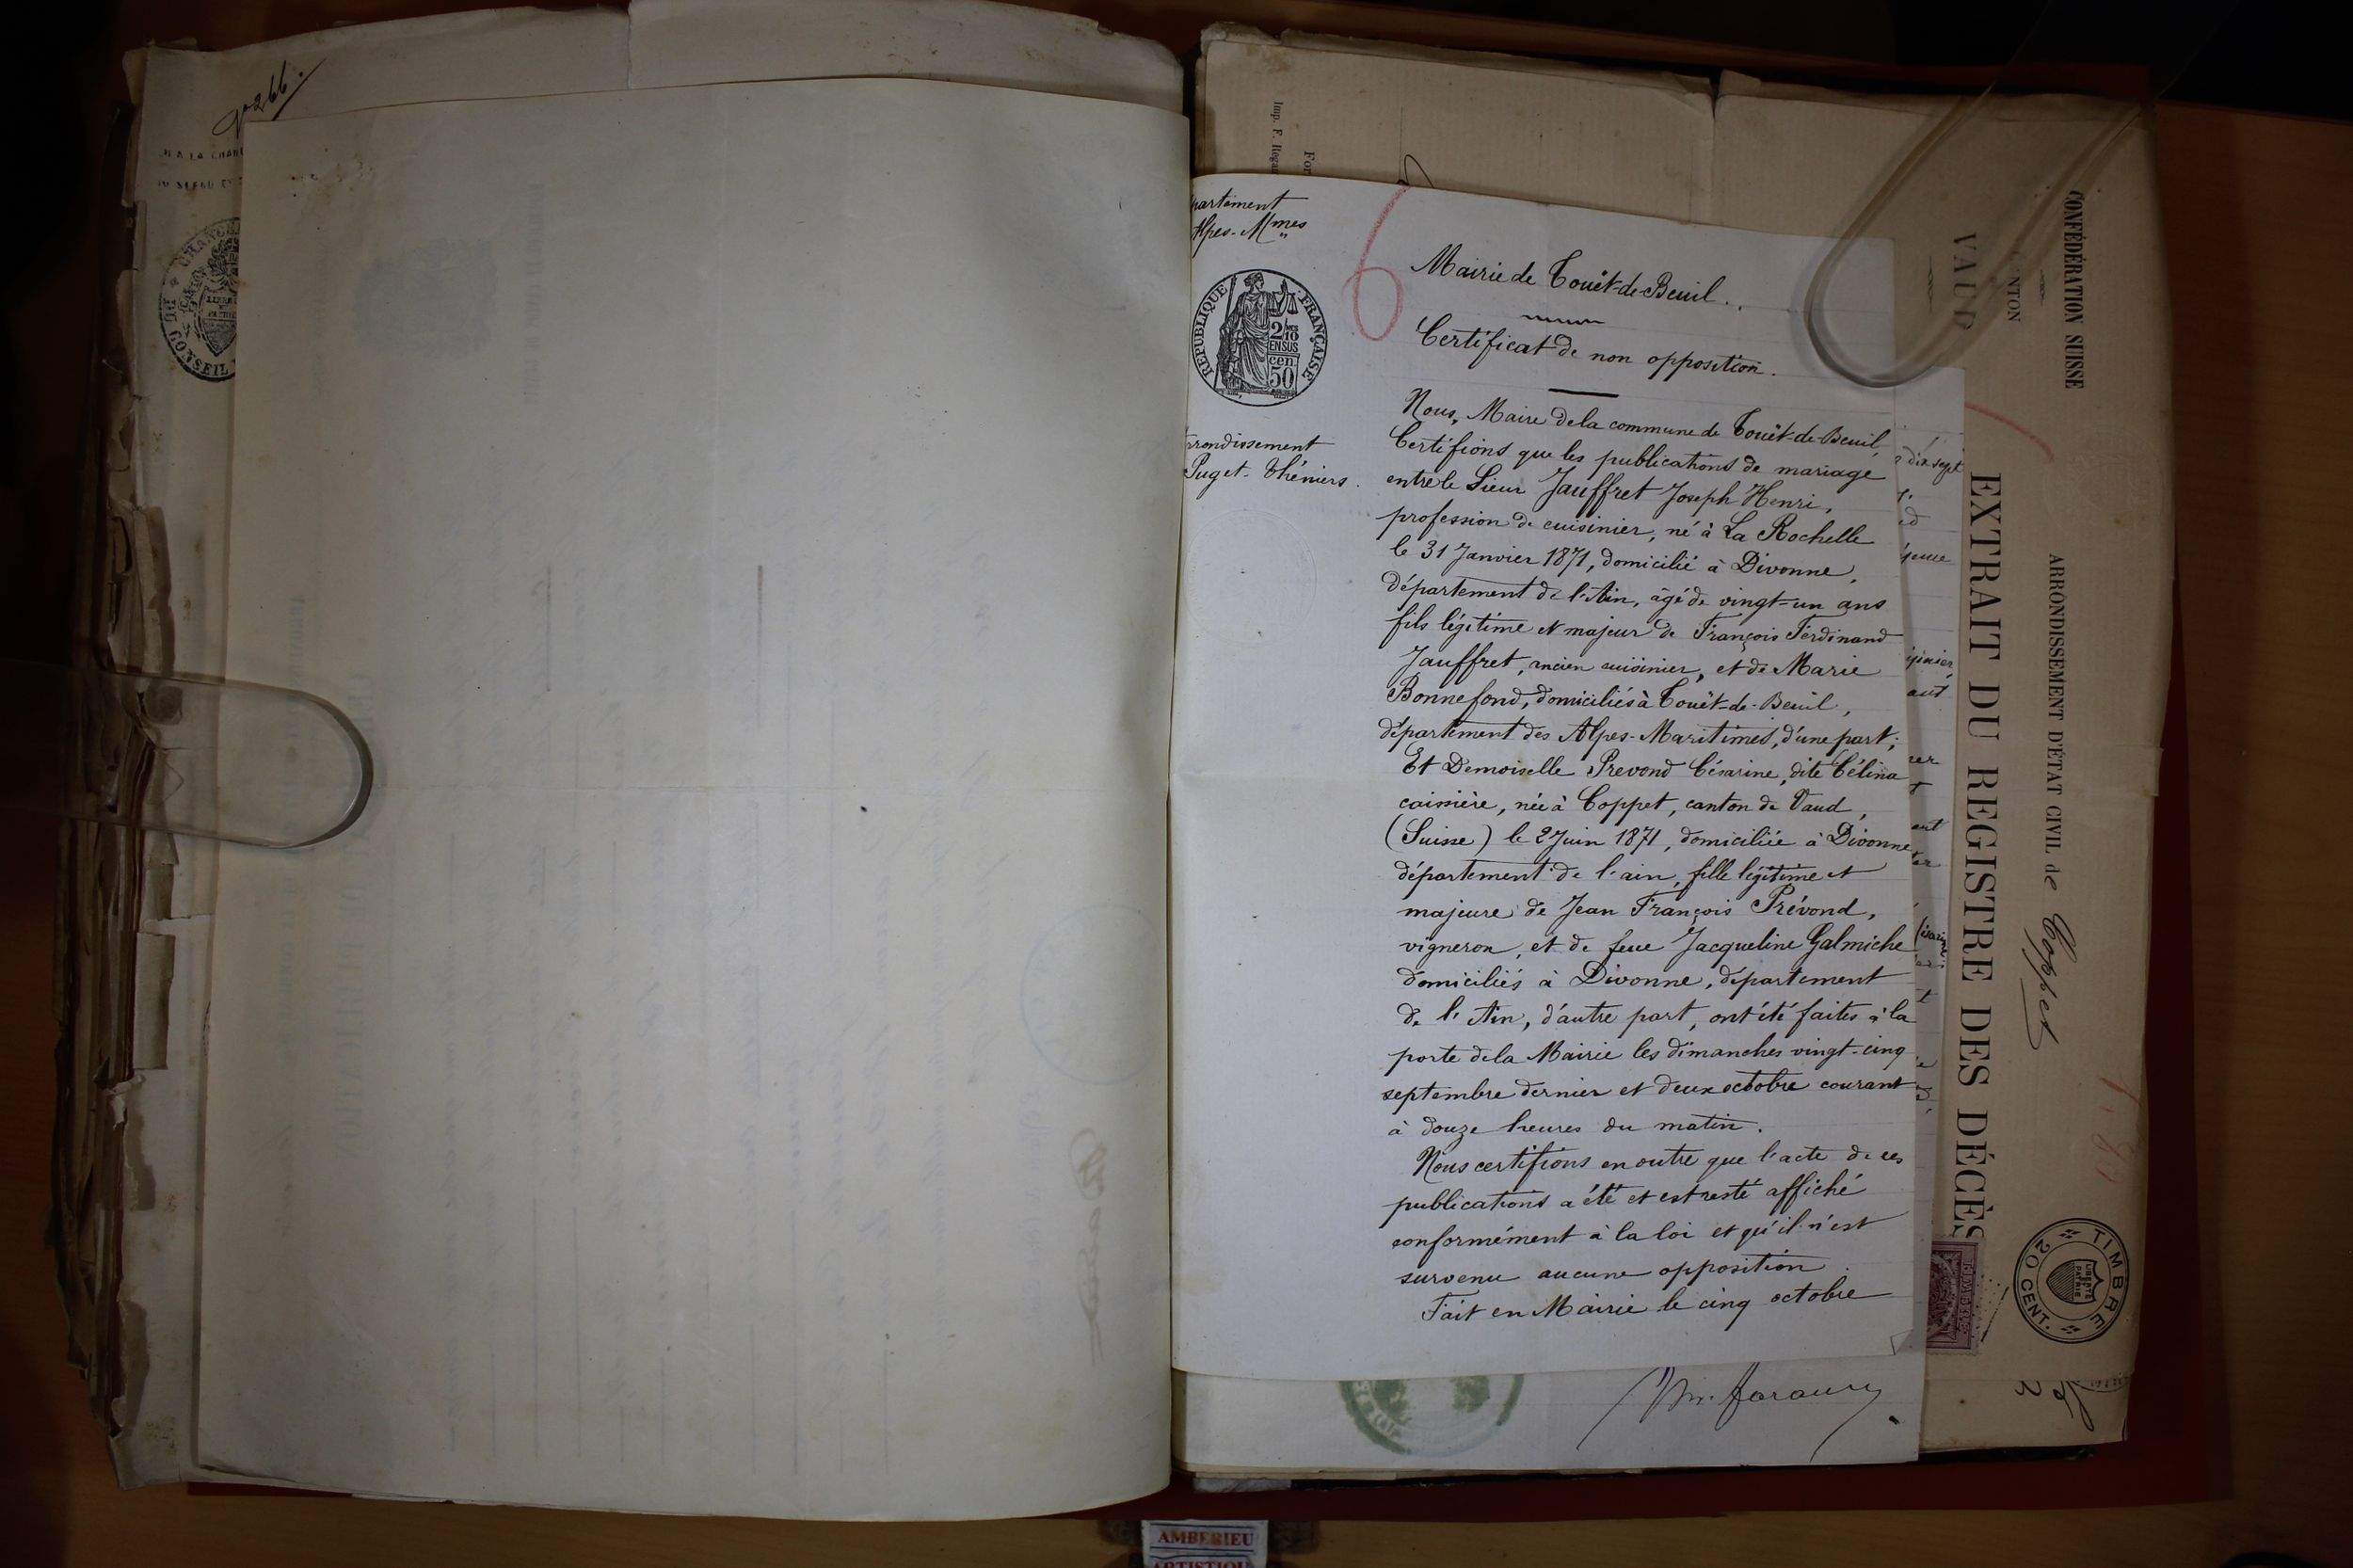 N° 266.
CONSEIL
partement
Alpes-Mmes
RÉPUBLIQUE FRANÇAISE
2/10
EN SUS
cen
50
rrondissement
Puget-Théniers.
Mairie de Touët-de-Beuil.
Certificat de non opposition.
Nous, Maire de la commune de Touët-de-Beuil,
Certifions que les publications de mariage
entre le Sieur Jauffret Joseph Henri,
profession de cuisinier, né à La Rochelle
le 31 Janvier 1871, domicilié à Divonne,
département de l'Ain, âgé de vingt-un ans
fils légitime et majeur de François Ferdinand
Jauffret, ancien cuisinier, et de Marie
Bonnefond, domiciliés à Touët-de-Beuil,
département des Alpes-Maritimes, d'une part;
Et Demoiselle Prevond Césarine, dite Célina
caissière, née à Coppet, canton de Vaud,
(Suisse) le 2 Juin 1871, domiciliée à Divonne
département de l'ain, fille légitime et
majeure de Jean François Prévond,
vigneron, et de feue Jacqueline Galmiche
domiciliés à Divonne, département
de l'Ain, d'autre part, ont été faites à la
porte de la Mairie les dimanches vingt-cinq
septembre dernier et deux octobre courant
à douze heures du matin.
Nous certifions en outre que l'acte de ces
publications a été et est resté affiché
conformément à la loi et qu'il n'est
survenu aucune opposition.
Fait en Mairie le cinq octobre
Imp. F. Rega
For
dix sept
CONFÉDÉRATION SUISSE
CANTON
VAUD
ARRONDISSEMENT D'ÉTAT CIVIL de Coppet
EXTRAIT DU REGISTRE DES DÉCÈS
TIMBRE
20 CENT.
LIBERTÉ
ET
PATRIE
AMBERIEU
ARTISTIQU